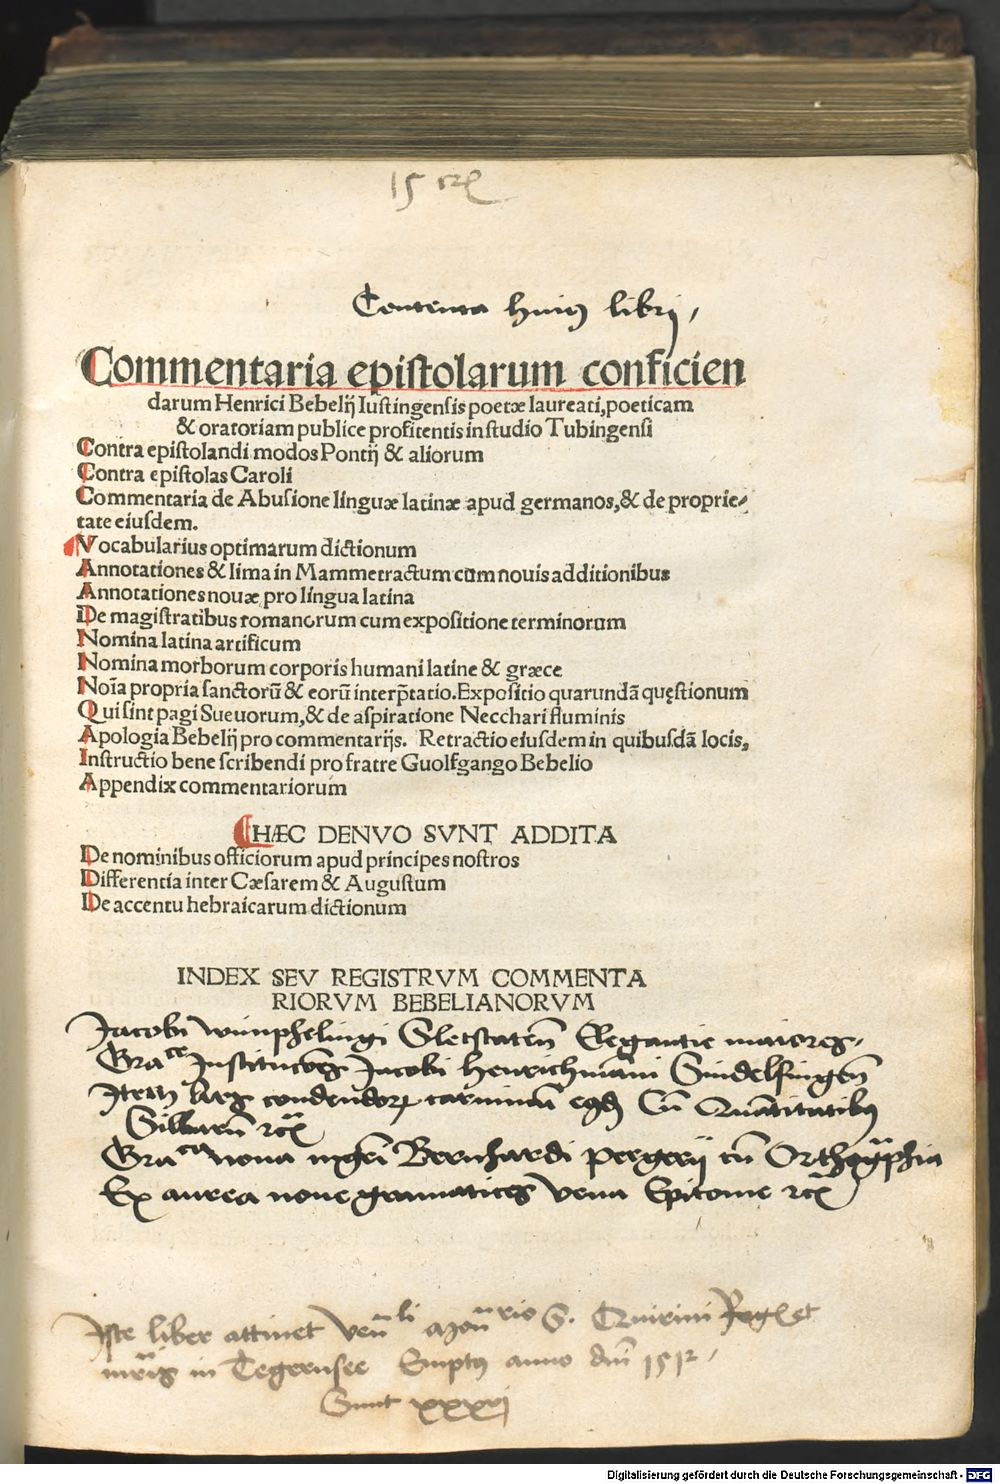 Contenta huius libri,
Commentaria epistolarum conficien
darum Henrici Bebelij Iustingensis poetæ laureati, poeticam
& oratoriam publice profitentis in studio Tubingensi
Contra epistolandi modos Pontij & aliorum
Contra epistolas Caroli
Commentaria de Abusione linguæ latinæ apud germanos, & de proprie⸗
tate eiusdem.
Vocabularius optimarum dictionum
Annotationes & lima in Mammetractum cum nouis additionibus
Annotationes nouæ pro lingua latina
De magistratibus romanorum cum expositione terminorum
Nomina latina artificum
Nomina morborum corporis humani latine & græce
Noĩa propria sanctorũ & eorũ interp̃tatio. Expositio quarundã quęstionum
Qui sint pagi Sueuorum, & de aspiratione Necchari fluminis
Apologia Bebelij pro commentarijs. Retractio eiusdem in quibusdã locis,
Instructio bene scribendi pro fratre Guolfgango Bebelio
Appendix commentariorum
HÆC DENVO SVNT ADDITA
De nominibus officiorum apud principes nostros
Differentia inter Cæsarem & Augustum
De accentu hebraicarum dictionum
INDEX SEV REGISTRVM COMMENTA
RIORVM BEBELIANORVM
Jacobi wimphelingi Sletstateñ Elegantie maiores,
Gra^ce Jacobi henrichmãni Sindelfingeñ
Item ars carminũ Cũ Quãtitatibus
Sillabarũ
Gra^ca noua Bernhardi pergerij cũ Orthographia
Ex aurea noue gramatices vena Epitome
Iste liber attinet Veñ^li S. Quirini Regis et
in Tegernsee Emptus anno dñi 1512,
Sunt xxxxi